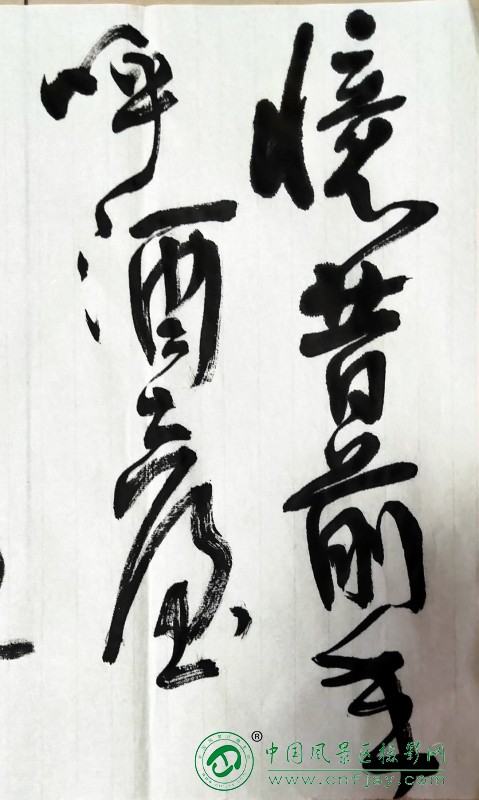 憶昔前年
呼酒
中国风景区摄影网
www.cnfjsy.com